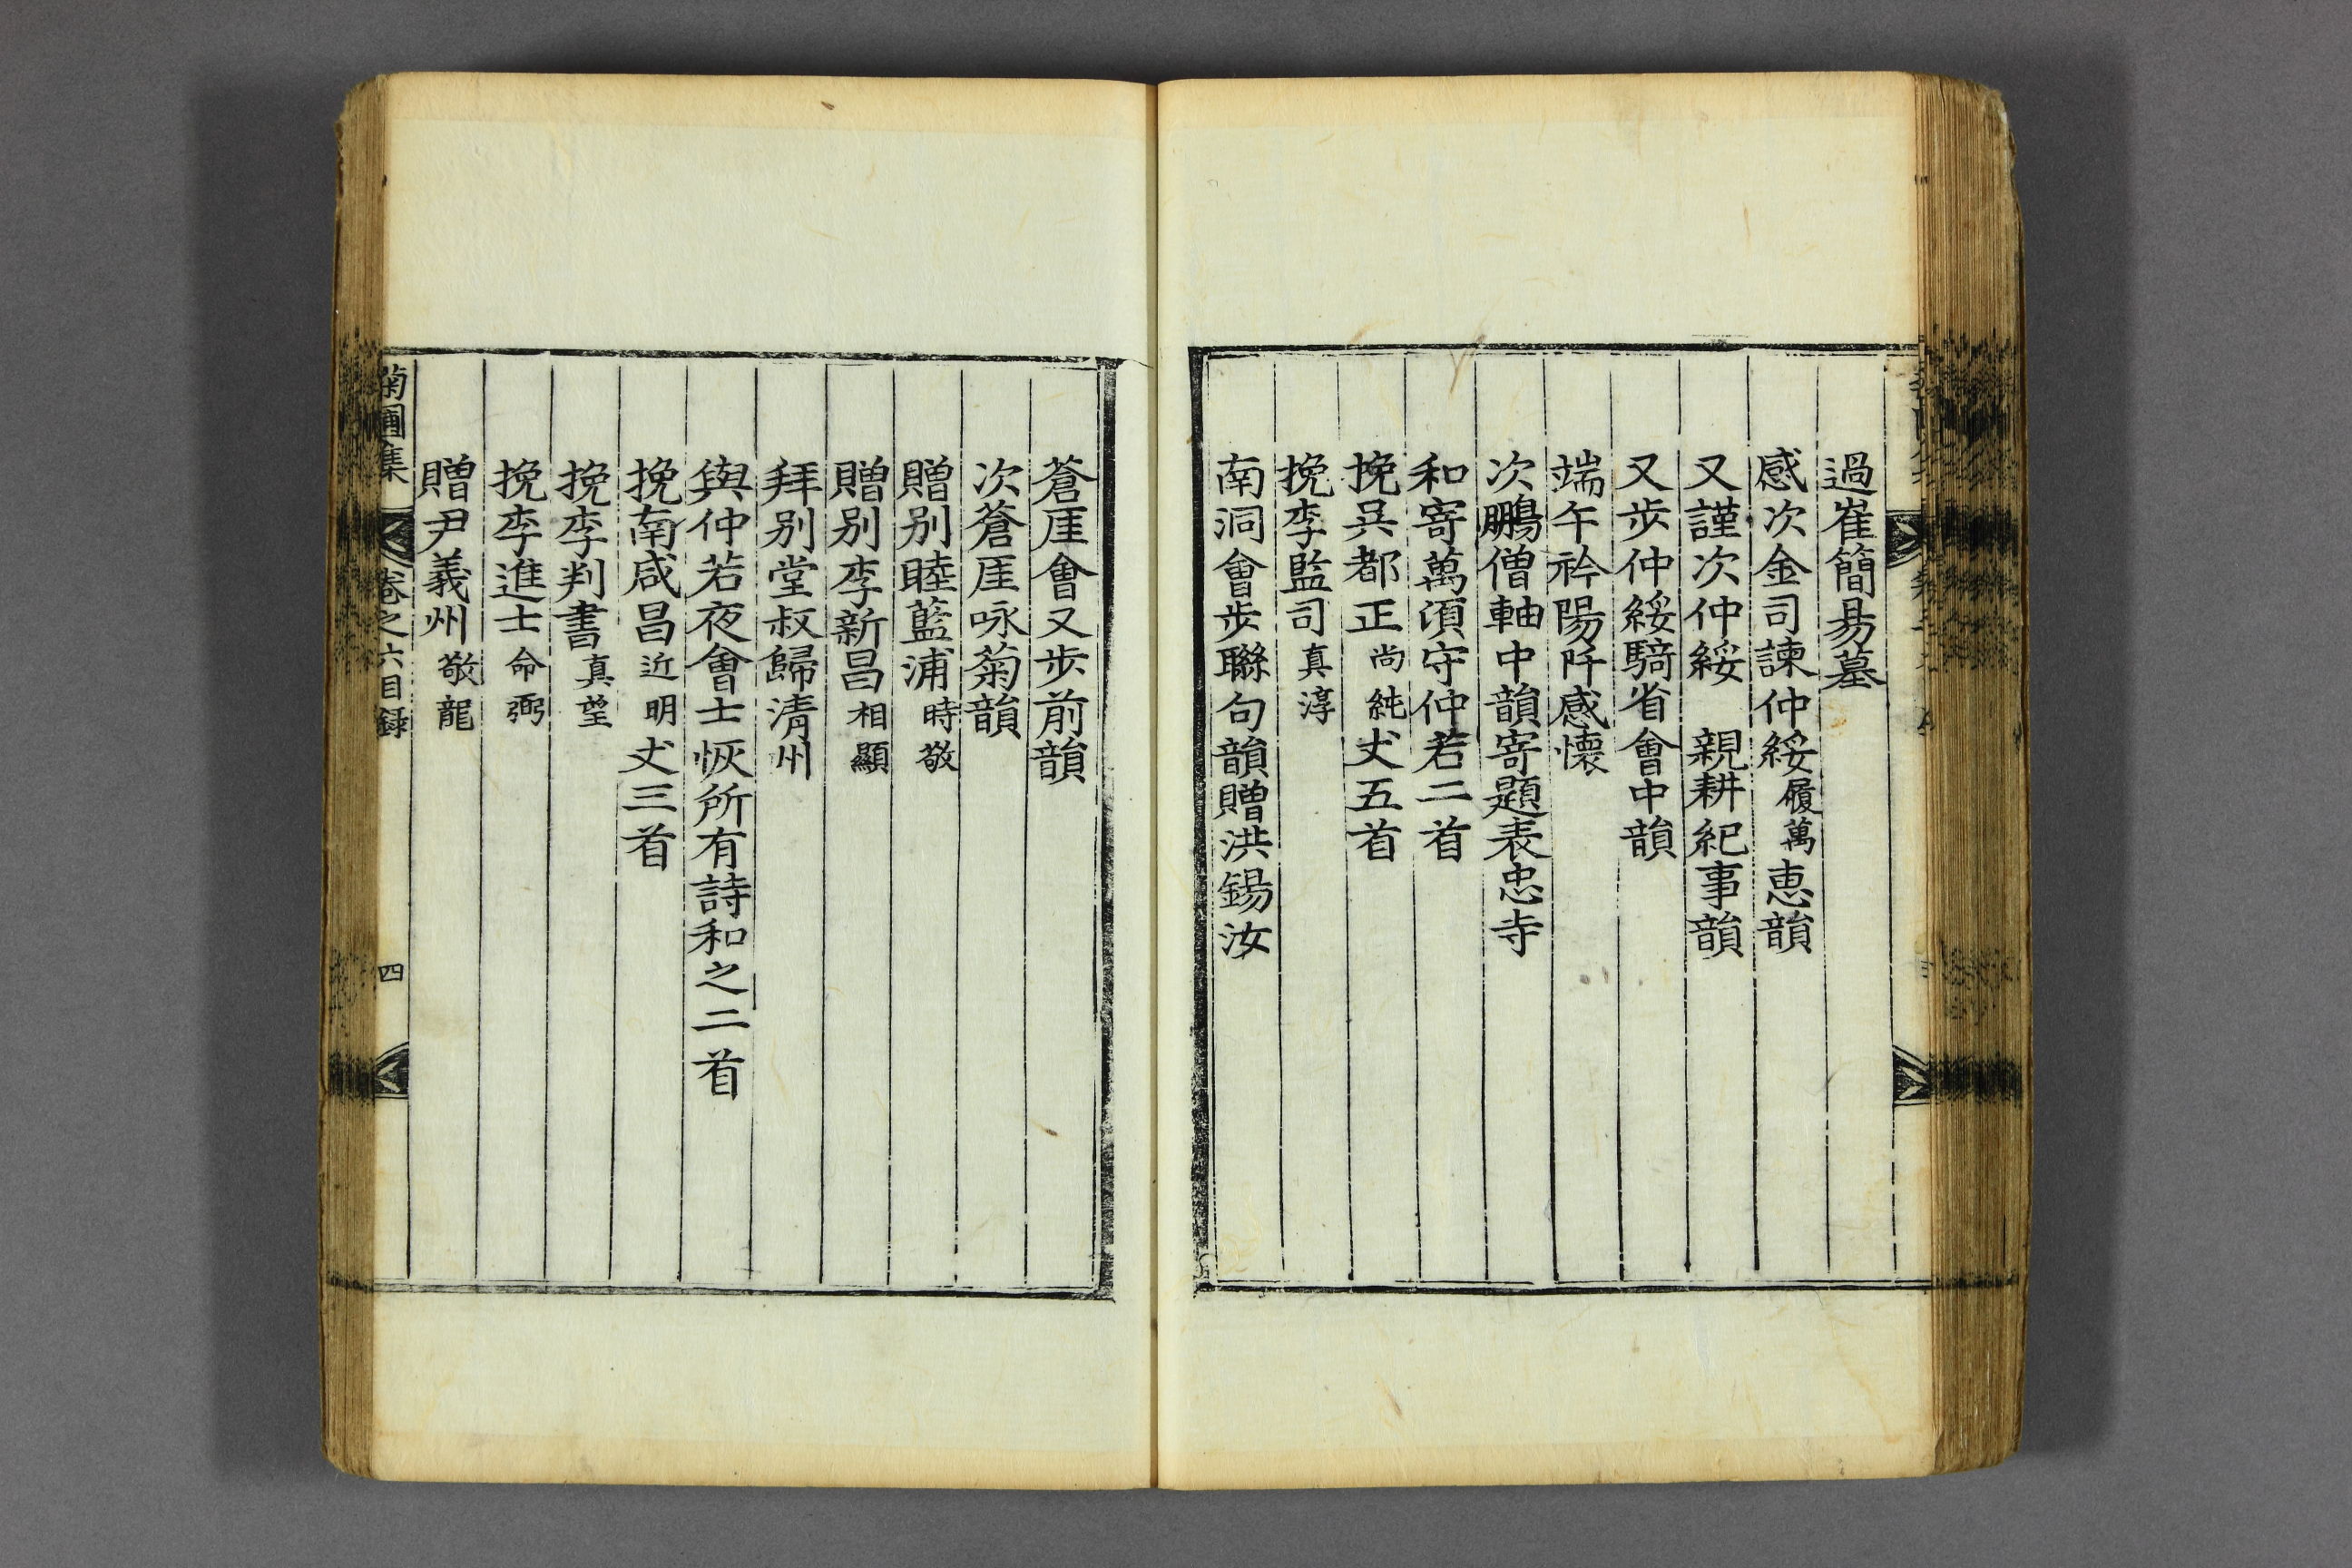 過崔簡易墓
感次金司諫仲綏履萬惠韻
又謹次仲綏 親耕紀事韻
又步仲綏騎省會中韻
端午衿陽阡感懷
次鵬僧軸中韻寄題表忠寺
和寄萬湏守仲若二首
挽吳都正尚純丈五首
挽李監司真淳
南洞會步聯句韻贈洪錫汝
蒼厓會又步前韻
次蒼厓咏菊韻
贈别睦藍浦時敬
贈别李新昌相顯
拜别堂叔歸清州
與仲若夜會士恢所有詩和之二首
挽南咸昌近明丈三首
挽李判書真望
挽李進士命弼
贈尹義州敬龍
菊圃集 卷之六目録 四